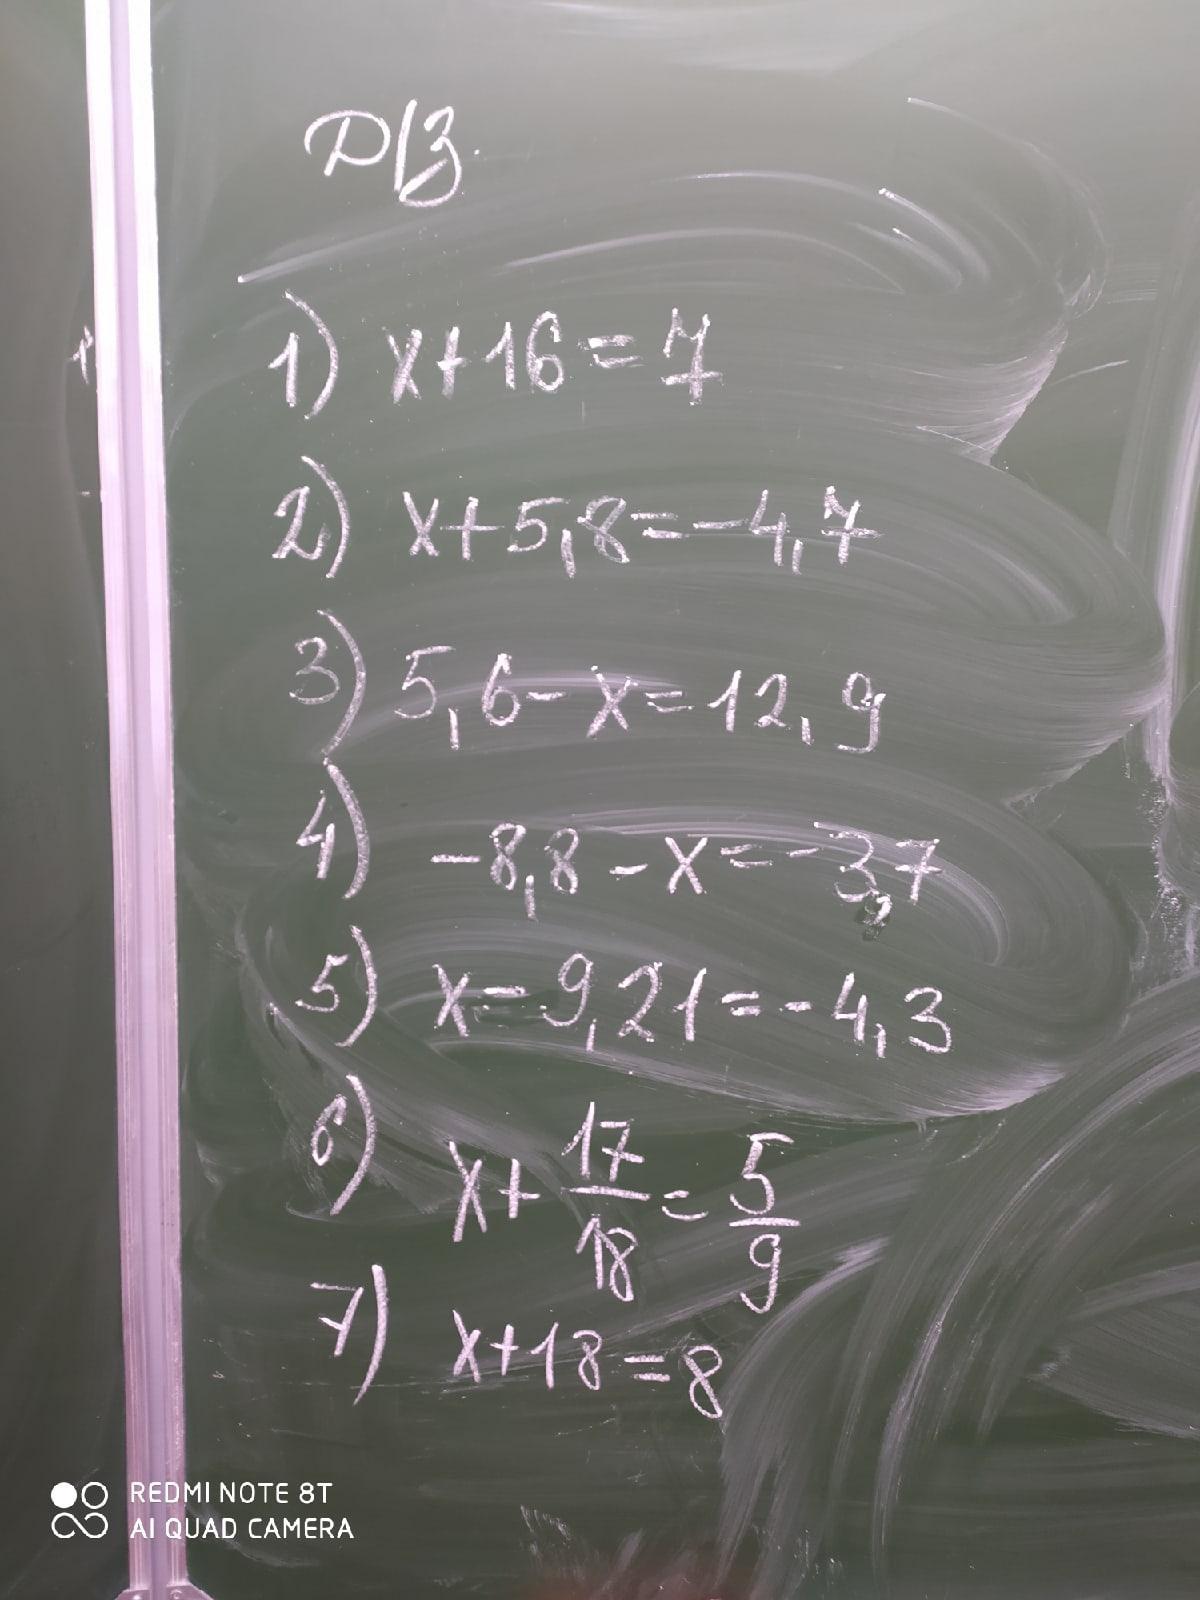 Д/з.
1) x+16=7
2) x+5,8=-4,7
3) 5,6-x=12,9
4) -8,8-x=-3,7
5) x-9,21=-4,3
6) x+17/18=5/9
7) x+18=8
REDMI NOTE 8T
AI QUAD CAMERA